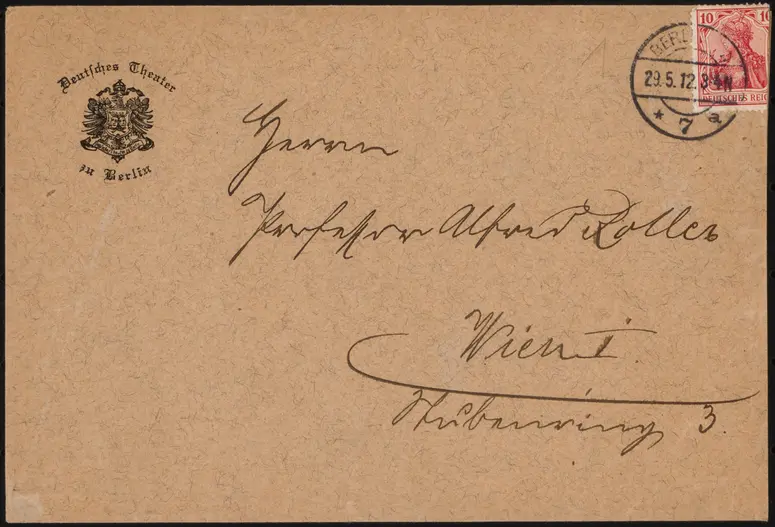 Deutsches Theater
zu Berlin
BERLIN
29.5.12.3-4N
* 7 a
10 10
DEUTSCHES REICH
Herrn
Professor Alfred Roller
Wien I.
Stubenring 3.